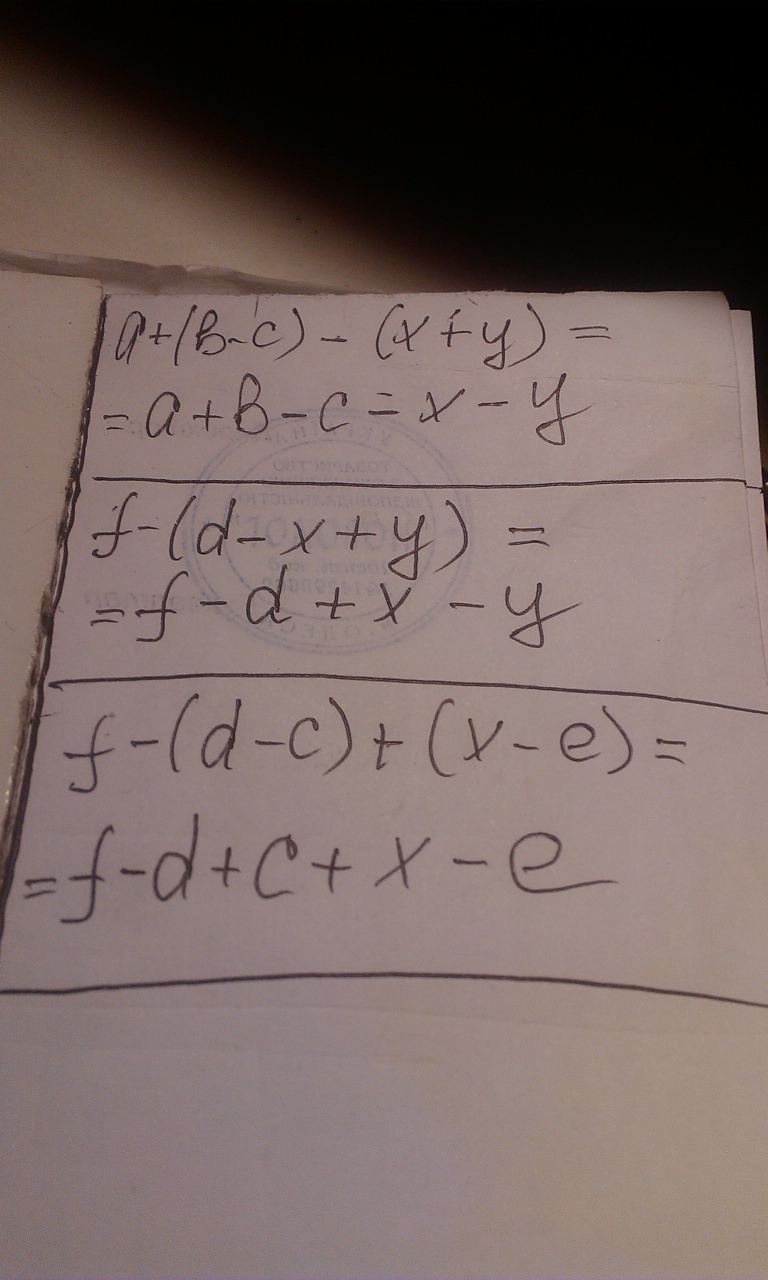 a+(b-c) - (x+y) =
= a+b-c = x-y
f-(d-x+y) =
= f-d+x-y
f-(d-c)+(x-e) =
= f-d+c+x-e